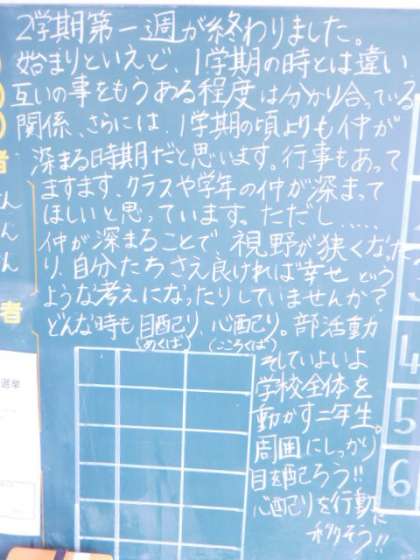 2学期第一週が終わりました。
始まりといえど、1学期の時とは違い
互いの事をもうある程度は分かり合っている
関係、さらには、1学期の頃よりも仲が
深まる時期だと思います。行事もあって
ますます、クラスや学年の仲が深まって
ほしいと思っています。ただし……
仲が深まることで、視野が狭くなった
り、自分たちさえ良ければ幸せ
ような考えになったりしていませんか?
どんな時も目配り、心配り。部活動
(めくば) (こころくば)
そしていよいよ
学校全体を
動かす二年生。
周囲にしっかり
目を配ろう!!
心配りを行動に
移そう!!
者
ん
ん
ん
者
選挙
4
5
6